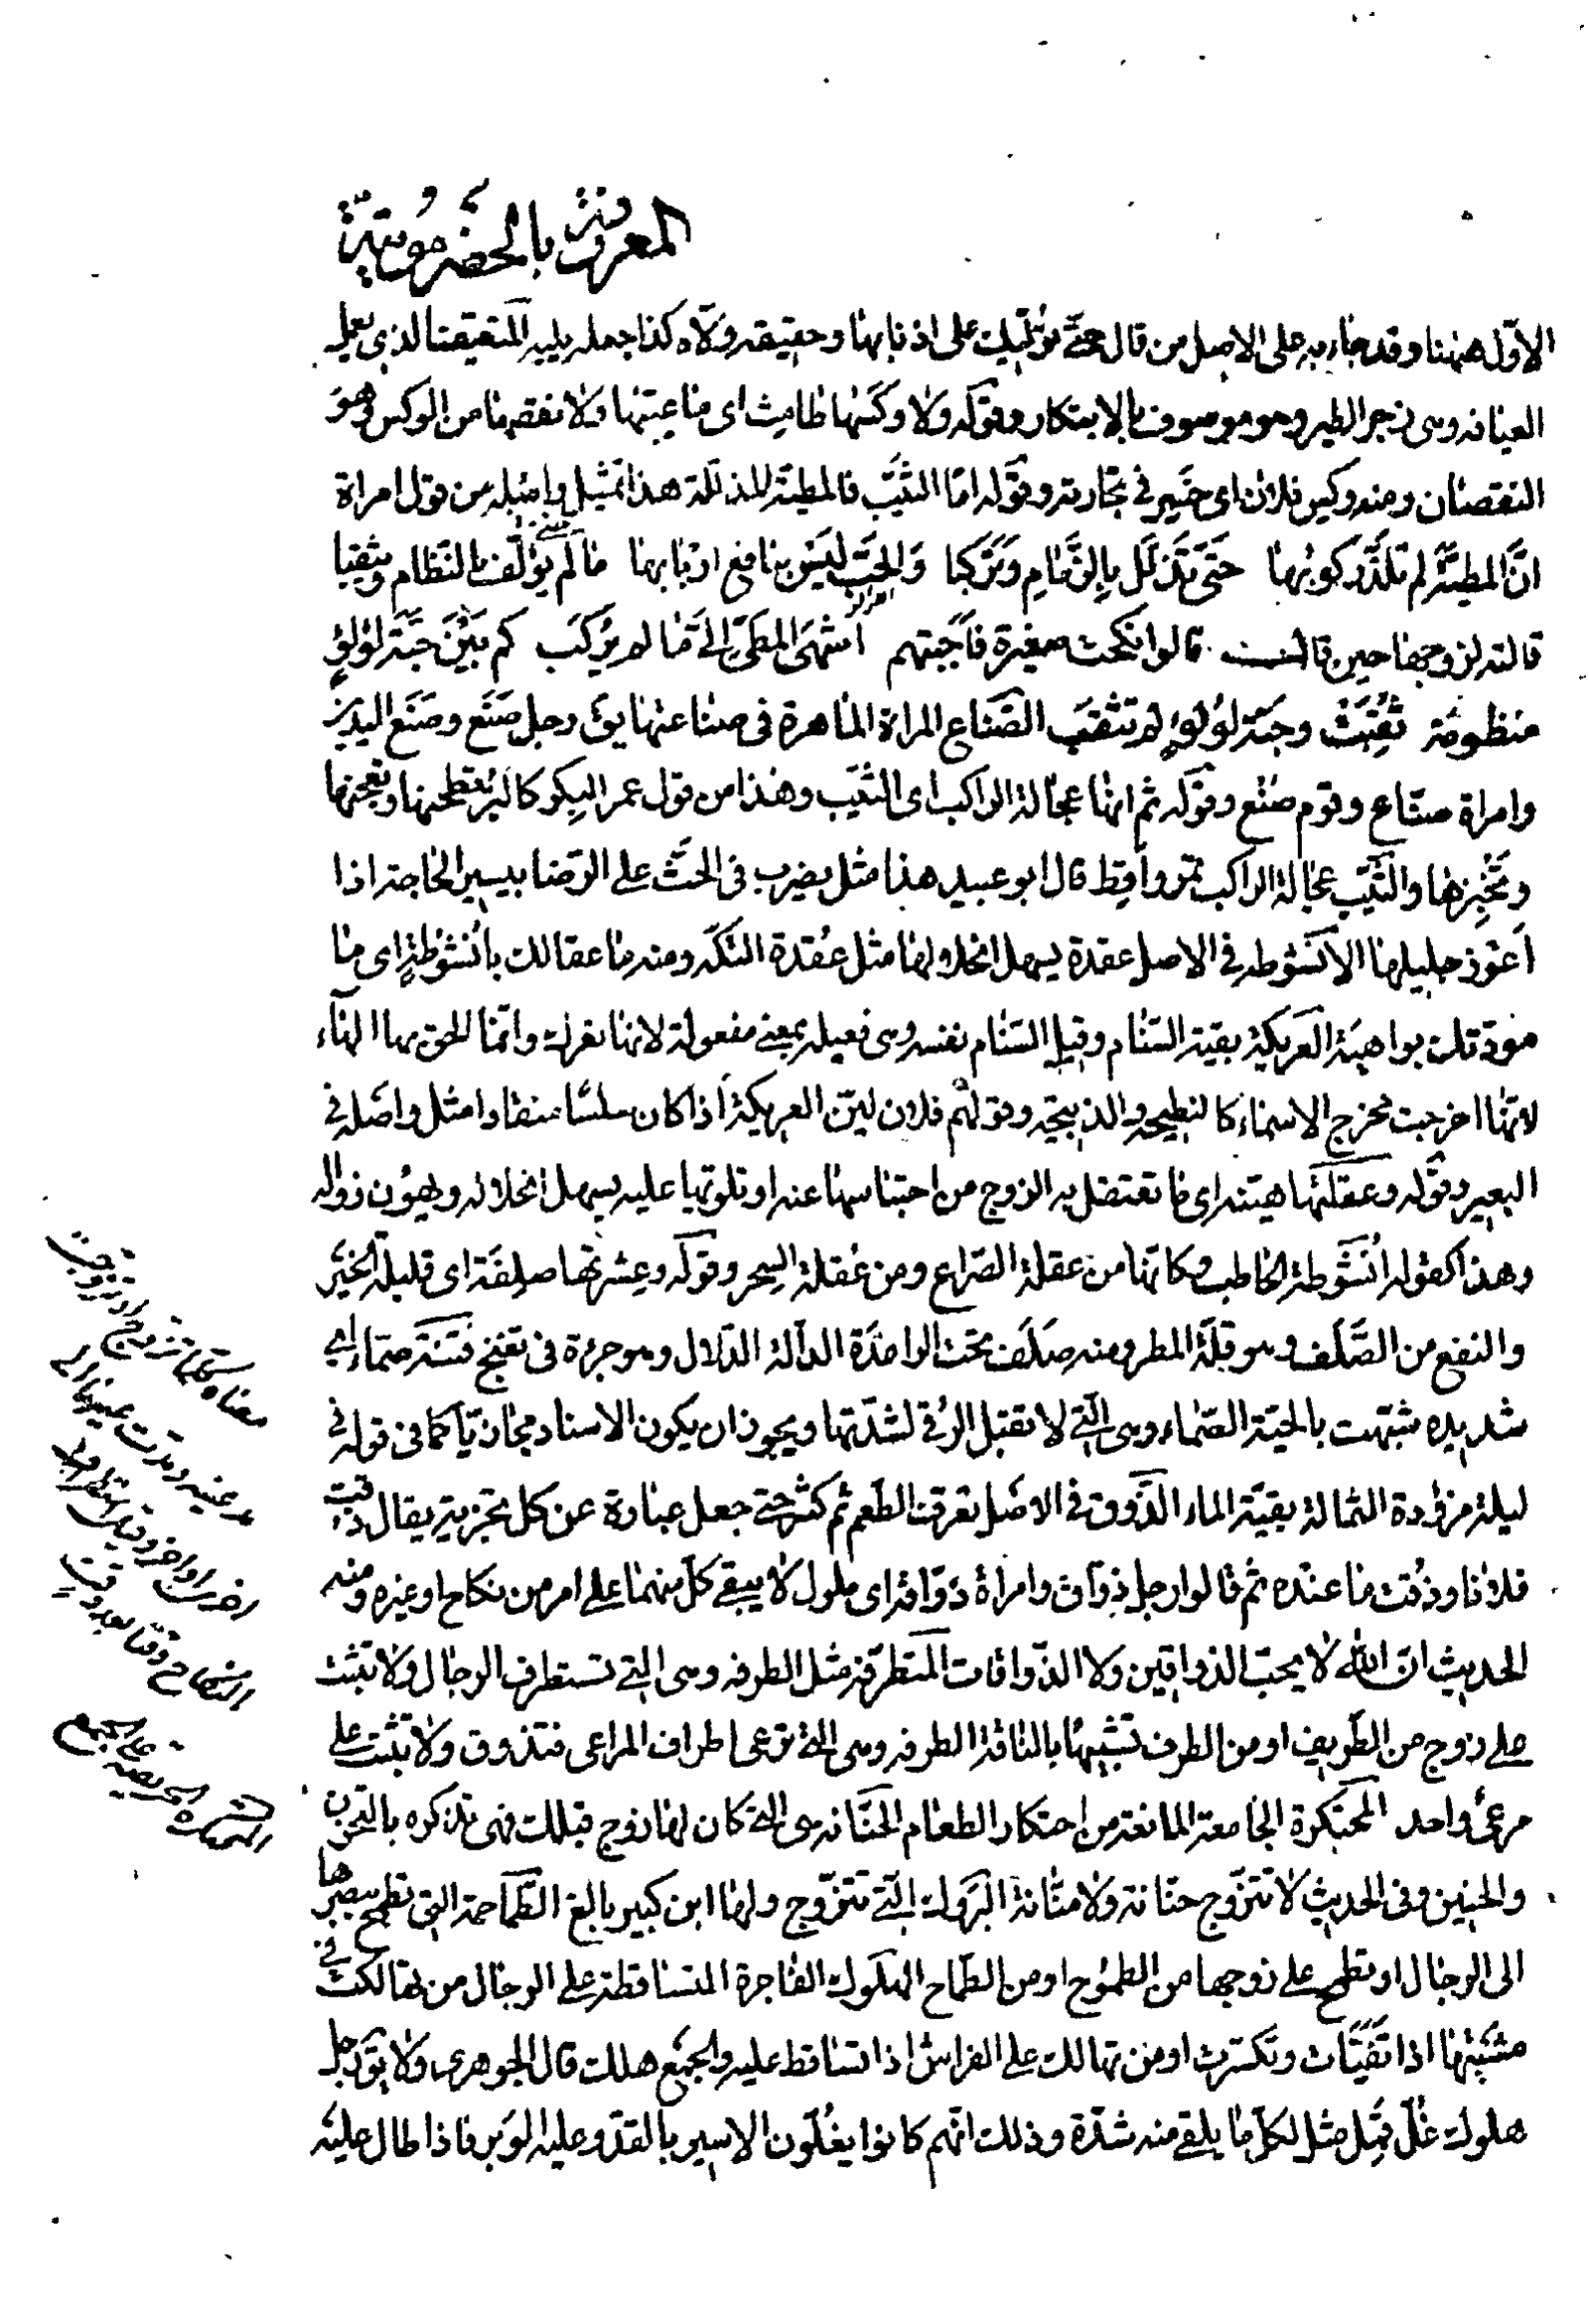 المعروفة بالحضرموتية
الاوّل ههنا وقد جاء به على الاصل من قال حتّى تولّيت على اذنابها وحقيقته ولّاه كذا جعله يليه المتعيّف الذى يعمل
العيافة وهى زجر الطير وهو موصوف بالابتكار وقوله ولا وكسها طامث اى ما عيبها ولا نقصها من الوكس وهو
النقصان ومنه وكس فلان اى خسر فى تجارته وقوله امّا الثيّب فالمطيّة المذلّلة هذا تمثيل واصله من قول امراة
انّ المطيّة لم تلذّ ركوبها حتّى تذلّل بالزّمام وتركبا والحبّ ليس بنافع اربابها ما لم يؤلّف بالنّظام ويثقبا
قالته لزوجها حين قال قالوا نكحت صغيرة فاجبتهم اشهى المطىّ الىّ ما لم يركب كم بين حبّة لؤلؤ
منظومة ثقبت وحبّة لؤلؤ لم تثقب الصّناع المراة الماهرة فى صناعتها يق رجل صنع وصنع اليدين
وامراة صناع وقوم صنع وقوله ثم انها عجالة الراكب اى الثيّب وهذا من قول عمر البكر كالبرّ تطحنها وتعجنها
وتخبزها والثيّب عجالة الراكب تمر واقط قال ابو عبيد هذا مثل يضرب فى الحثّ على الرّضا بيسير الحاجة اذا
اعوز جليلها الانشوطه فى الاصل عقدة يسهل انحلالها مثل عقدة التكّه ومنه ما عقالك بانشوطة اى ما
مودّتك بواهية العريكة بقية السّنام وقيل السّنام نفسه وهى فعيله بمعنى مفعولة لانها تعرك وانّما الحق بها الهاء
لانّها اخرجت مخرج الاسماء كالنطيحه والذبيحة وقولهم فلان ليّن العريكة اذا كان سلسا منقادا مثل واصله فى
البعير وقوله وعقلتها هيّنة اى ما تعتضل به الزوج من احتباسها عنه او تلوّيها عليه يسهل انحلاله ويهون زواله
وهذا كقوله انشوطة الخاطب وكانّها من عقلة الصّراع ومن عقلة السحر وقوله وعشرتها صلفة اى قليلة الخير
والنفع من الصّلف وهو قلّة المطر ومنه صلف تحت الراعدة الدالّة الدّلال وهو جرءة فى تغنّج فتنته صمّاء اى
شديده شبّهت بالحيّة الصّماء وهى الّتى لا تقبل الرّقى لشدّتها ويجوز ان يكون الاسناد مجازيّا كما فى قوله فى
ليلة مزؤدة الثمالة بقيّة الماء الذّوق فى الاصل تعرّف الطّعم ثم كثر حتى جعل عبارة عن كل تجربة يقال ذقت
فلانا وذقت ما عنده ثم قالوا رجل ذوّاق وامراة ذوّاقة اى ملول لا يبقى كلّ منهما على امر من نكاح او غيره ومنه
الحديث انّ الله لا يحبّ الذواقين ولا الذّواقات المتطرّفة مثل الطرفه وهى التى تستطرف الرجال ولا تثبت
على زوج من الطّريف او من الطرف تشبيها بالناقة الطرفه وهى التى ترعى اطراف المراعى فتذوق ولا تثبت على
مرعى واحد المحتكرة الجامعة المانعة من احتكار الطعام الحنّانه هى التى كان لها زوج قبلك فهى تذكره بالتحزّن
والحنين وفى الحديث لا تتزوّج حنّانة ولا منّانة البروك الّتى تتزوّج ولها ابن كبير بالغ الطّماحة التى تطمح ببصرها
الى الرجال او تطمح على زوجها من الطموح او من الطّماح الهلوك الفاجرة المتساقطة على الرجال من تهالكت فى
مشيتها اذا تفيّأت وتكسّرت او من تهالك على الفراش اذا تساقط عليه والجمع هلك قال الجوهرى ولا يق رجل
هلوك غلّ قمل مثل لكلّ ما يلقى منه شدّة وذلك انّهم كانوا يغلّون الاسير بالقدّ وعليه الوبر فاذا طال عليه